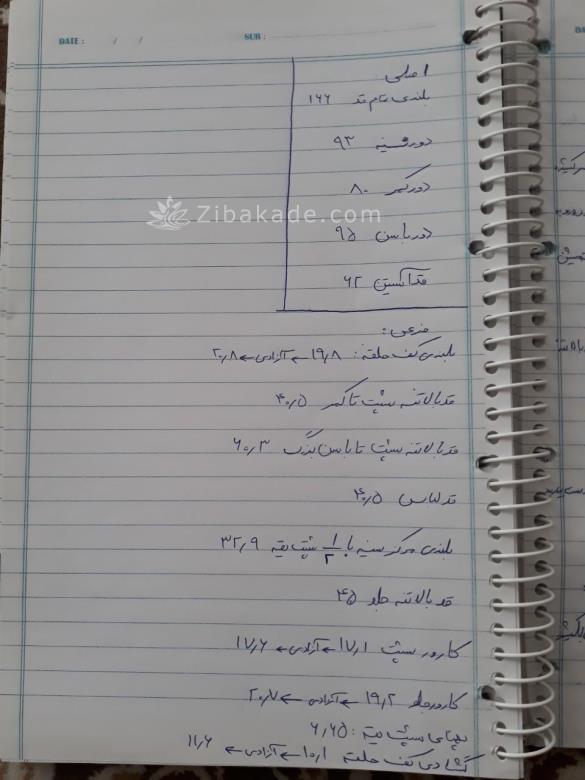 DATE : / / SUB :
اصلی
بلندی تمام قد ۱۶۶
دور سینه ۹۳
دور کمر ۸۰
دور باسن ۹۵
قد آستین ۶۲
فرعی:
بلندی کف حلقه: ۱۹٫۸ ← آزادی ← ۲۰٫۸
قد بالاتنه پشت تا کمر ۴۰٫۵
قد بالاتنه پشت تا باسن بزرگ ۶۰٫۳
قد لباس ۴۰٫۵
بلندی مرکز سینه با ۱/۲ پشت یقه ۳۲٫۹
قد بالاتنه جلو ۴۵
کارور پشت ۱۷٫۱ ← آزادی ← ۱۷٫۶
کارور جلو ۱۹٫۲ ← آزادی ← ۲۰٫۷
پهنای پشت یقه: ۶٫۶۵
گشادی کف حلقه ۱۰٫۱ ← آزادی ← ۱۱٫۶
Zibakade.com